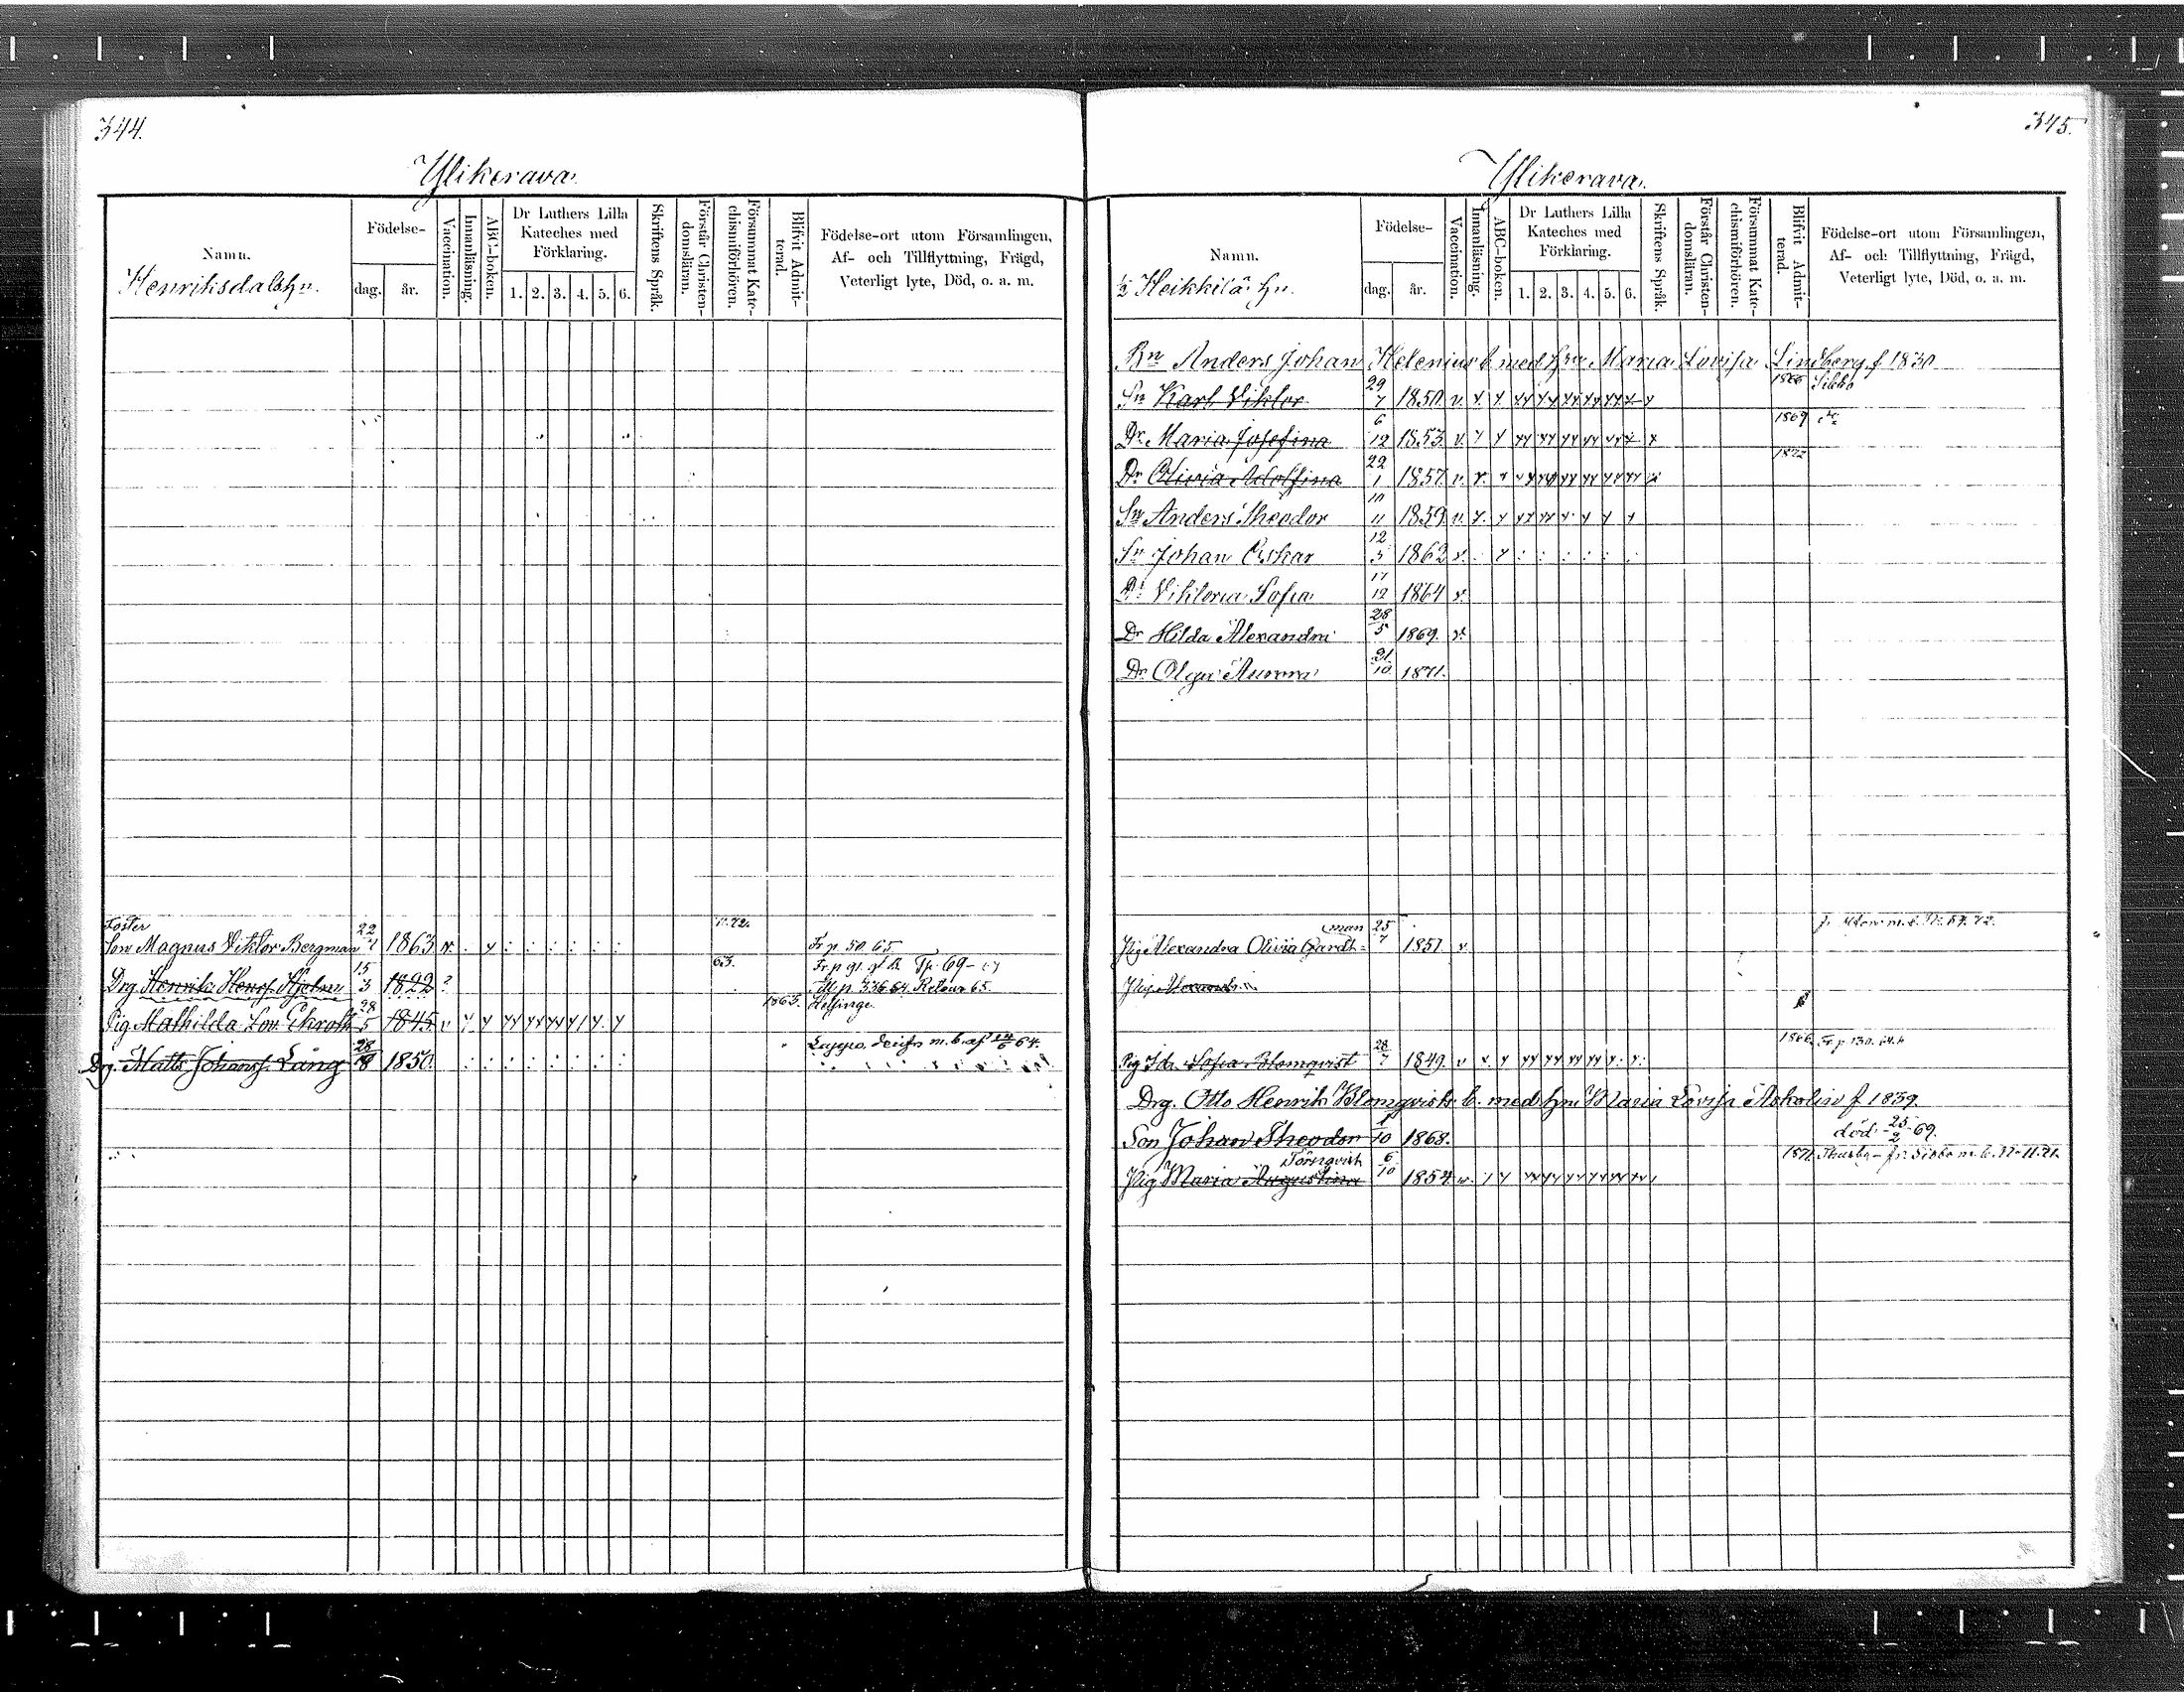 344.
Ylikerava.
Namn.
Henriksdals hn.
Födelse-
dag.
år.
Vaccination.
Innanläsning.
ABC-boken.
Dr Luthers Lilla
Kateches med
Förklaring.
1. 2. 3. 4. 5. 6.
Skriftens Språk.
Förstår Christen-
domsläran.
Försummat Kate-
chismiförhören.
Blifvit Admit-
terad.
Födelse-ort utom Församlingen,
Af- och Tillflyttning, Frägd,
Veterligt lyte, Död, o. a. m.
Foster
Son Magnus Viktor Bergman 22 1863 72. Fr p. 50 65.
Drg Henrik Henrs. Hjelm 15/3 1822 ? 63. Fr. p 91 Tp. 69
Till p. 336 64. Retour 65.
Pig Mathilda Lov. Ekroth 28/5 1845 v 1863. Helsinge.
Drg. Matts Johanss. Lång 28 1850 Lappo. m. b. af 64.
345.
Ylikerava.
Namn.
½ Heikkilä hn.
Födelse-
dag.
år.
Vaccination.
Innanläsning.
ABC-boken.
Dr Luthers Lilla
Kateches med
Förklaring.
1. 2. 3. 4. 5. 6.
Skriftens Språk.
Förstår Christen-
domsläran.
Försummat Kate-
chismiförhören.
Blifvit Admit-
terad.
Födelse-ort utom Församlingen,
Af- och Tillflyttning, Frägd,
Veterligt lyte, Död, o. a. m.
Bn Anders Johan Helenius b med hu Maria Lovisa Lindberg f 1830
Sn Karl Viktor 29/7 1850 v. 1866 Sibbo
Dr Maria Josefina 6/12 1853 v. 1869
Dr Olivia Adolfina 22/1 1857 v. 1872
Sn Anders Theodor 10/11 1859 v.
Sn Johan Oskar 12/3 1862 v.
Dr Viktoria Sofia 17/12 1864 v.
Dr Hilda Alexandra 28/5 1869. v.
Dr Olga Aurora 21/10 1871.
Pig Alexandra Olivia Gardt= man 25/7 1851 v. m. b. No 64. 72.
Pig Alexandr
Pig Ida Sofia Blomqvist 28/7 1849. v 1866 Fr. p 130. 64.
Drg. Otto Henrik Blomqvist b. med hu Maria Lovisa f 1839
Son Johan Theodor 1/10 1868. död 25/2 69.
Pig Maria Augustina Törnqvist 6/10 1854 v. 1871 Thusby - fr. Sibbo m. b. 71.